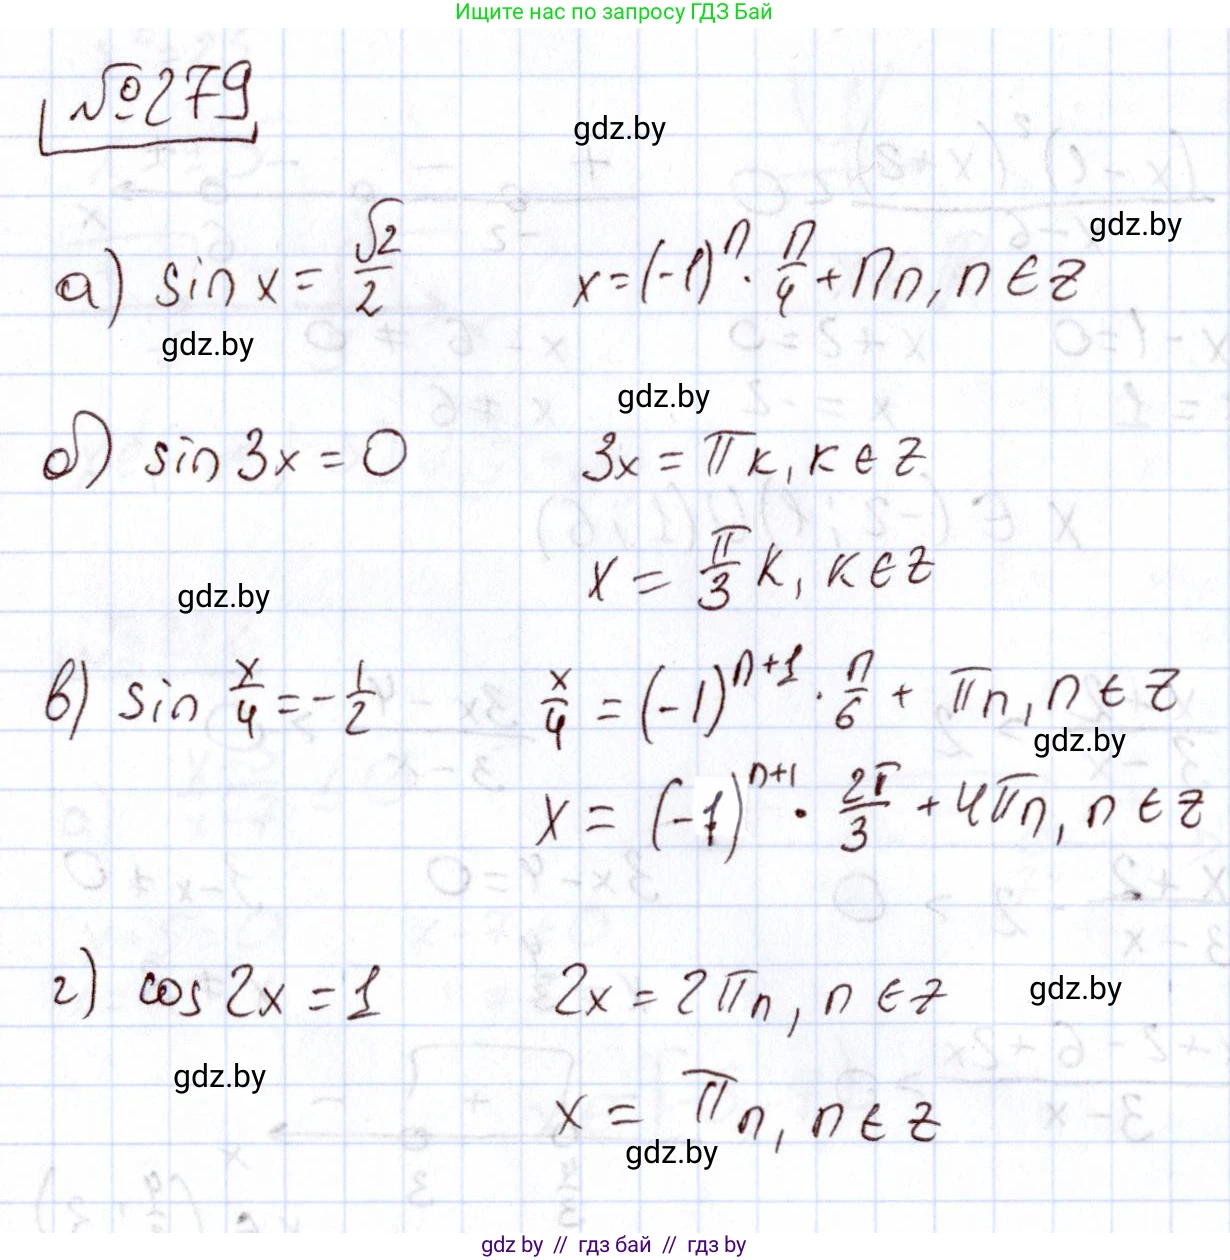 Ищите нас по запросу ГДЗ Бай
№279
gdz.by
gdz.by
а) sin x = √2/2    x = (-1)^n · π/4 + πn, n ∈ Z
gdz.by
gdz.by
б) sin 3x = 0    3x = πk, k ∈ Z
x = π/3 k, k ∈ Z
gdz.by
в) sin x/4 = -1/2    x/4 = (-1)^(n+1) · π/6 + πn, n ∈ Z
gdz.by
x = (-1)^(n+1) · 2π/3 + 4πn, n ∈ Z
г) cos 2x = 1    2x = 2πn, n ∈ Z
gdz.by
gdz.by
x = πn, n ∈ Z
gdz.by
gdz by // гдз бай // gdz by